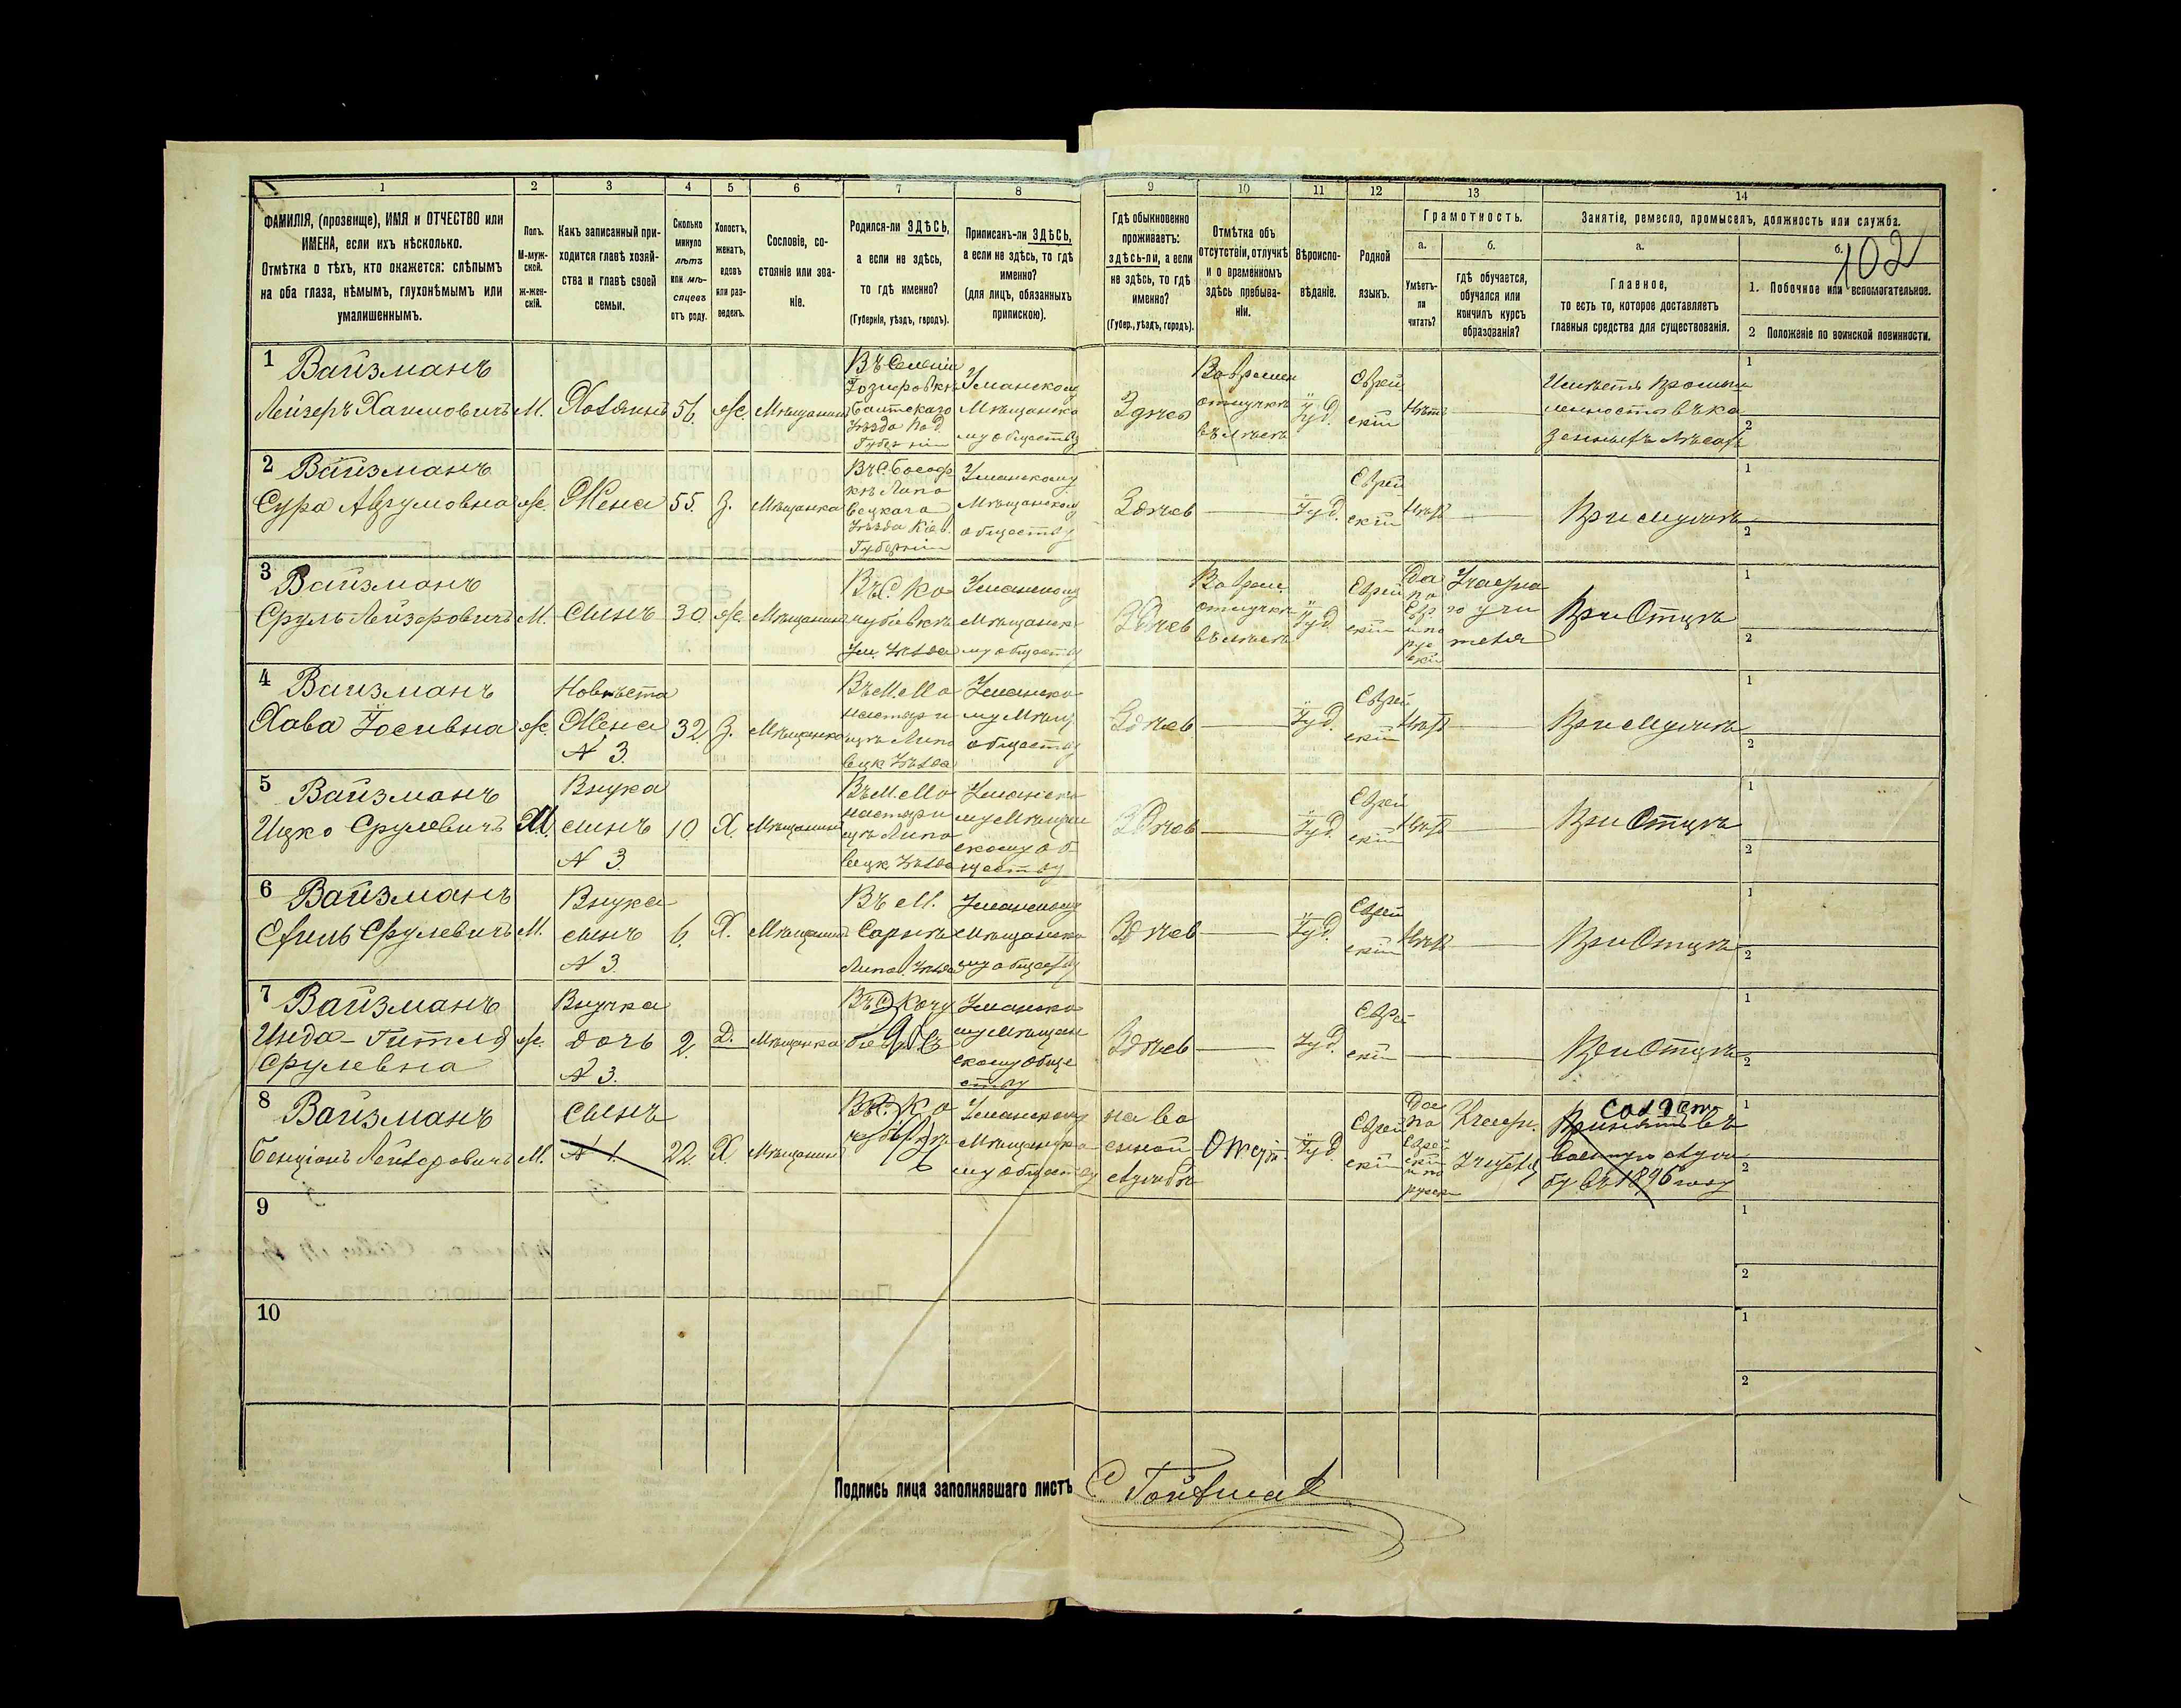 1
2
3
4
5
6
7
8
9
10
11
12
13
14
ФАМИЛІЯ, (прозвище), ИМЯ и ОТЧЕСТВО или
ИМЕНА, если ихъ нѣсколько.
Отмѣтка о тѣхъ, кто окажется: слѣпымъ
на оба глаза, нѣмымъ, глухонѣмымъ или
умалишеннымъ.
Полъ.
М-муж-
ской.
ж-жен-
скій.
Какъ записанный при-
ходится главѣ хозяй-
ства и главѣ своей
семьи.
Сколько
минуло
лѣтъ
или мѣ-
сяцевъ
отъ роду.
Холостъ,
женатъ,
вдовъ
или раз-
веденъ.
Сословіе, со-
стояніе или зва-
ніе.
Родился-ли ЗДѢСЬ,
а если не здѣсь,
то гдѣ именно?
(Губернія, уѣздъ, городъ).
Приписанъ-ли ЗДѢСЬ,
а если не здѣсь, то гдѣ
именно?
(для лицъ, обязанныхъ
припискою).
Гдѣ обыкновенно
проживаетъ:
здѣсь-ли, а если
не здѣсь, то гдѣ
именно?
(Губер., уѣздъ, городъ).
Отмѣтка объ
отсутствіи, отлучкѣ
и о временномъ
здѣсь пребыва-
ніи.
Вѣроиспо-
вѣданіе.
Родной
языкъ.
Грамотность.
а.
б.
Умѣетъ-
ли
читать?
гдѣ обучается,
обучался или
кончилъ курсъ
образованія?
Занятіе, ремесло, промыселъ, должность или служба.
а.
б.
102
Главное,
то есть то, которое доставляетъ
главныя средства для существованія.
1. Побочное или вспомогательное.
2 Положеніе по воинской повинности.
1 Вайзманъ
Лейзеръ Хаимовичъ
М.
Хозяинъ
56.
Ж.
Мѣщанинъ
Въ Селеніи
Балтскаго
Уѣзда Под.
Губерніи
Уманскому
Мѣщанско
му обществу
Здѣсь
Во времен
отлучкѣ
въ лѣсѣ
Іуд.
Еврей
скій
Нѣтъ
Имѣетъ промыш
ленность въ ка
зенныхъ лѣсахъ
1
2
2 Вайзманъ
Сура Аврумовна
Ж.
Жена
55.
З.
Мѣщанка
Липо
вецкаго
Уѣзда Кіев.
Губерніи
Уманскому
Мѣщанскому
обществу
Здѣсь
Іуд.
Еврей
скій
Нѣтъ
При мужѣ
1
2
3 Вайзманъ
Сруль Лейзеровичъ
М.
Сынъ
30
Ж.
Мѣщанинъ
Въ С. Ко
чубіевкѣ
Ум. Уѣзда
Уманскому
Мѣщанско
му обществу
Здѣсь
Во врем.
отлучкѣ
въ лѣсѣ
Іуд.
Еврей
скій
Да
по
Евр
и по
рус
скій
Участна
го учи
теля
При Отцѣ
1
2
4 Вайзманъ
Хава Іосивна
Ж.
Невѣста
Жена
№ 3.
32
З.
Мѣщанка
Въ М. Мо
настыри
щѣ Липо
вецк. Уѣзда
Уманско
му Мѣщ
обществу
Здѣсь
Іуд.
Еврей
скій
Нѣтъ
При мужѣ
1
2
5 Вайзманъ
Ицко Срулевичъ
М.
Внукъ
сынъ
№ 3
10
Х.
Мѣщанинъ
Въ М. Мо
настыри
щѣ Липо
вецк. Уѣзда
Уманско
му Мѣщан
скому об
ществу
Здѣсь
Іуд.
Еврей
скій
Нѣтъ
При Отцѣ
1
2
6 Вайзманъ
Срулевичъ
М.
Внука
сынъ
№ 3
6.
Х.
Мѣщанинъ
Въ М.
Сарнѣ
Липов. Уѣзда
Уманскому
Мѣщанско
му обществу
Здѣсь
Іуд.
Еврей
скій
Нѣтъ
При Отцѣ
1
2
7 Вайзманъ
Инда-Гитля
Срулевна
Ж.
Внучка
дочь
№ 3.
2.
Д.
Мѣщанка
Въ С. Кочу
Уманско
му Мѣщан
скому Обще
ству
Здѣсь
Іуд.
Евре
скій
При Отцѣ
1
2
8 Вайзманъ
Бенціонъ Лейзеровичъ
М.
Сынъ
№ 1.
22.
Х.
Мѣщанинъ
Въ С. Ко
Уманскому
Мѣщанско
му Обществу
на во
енной
службѣ
Іуд.
Еврей
скій
Да
по
Еврей
скій
и по
русски
Солдат
Принятъ въ
военную служ
бу въ 1896 году
1
2
9
1
2
10
1
2
Подпись лица заполнявшаго листъ